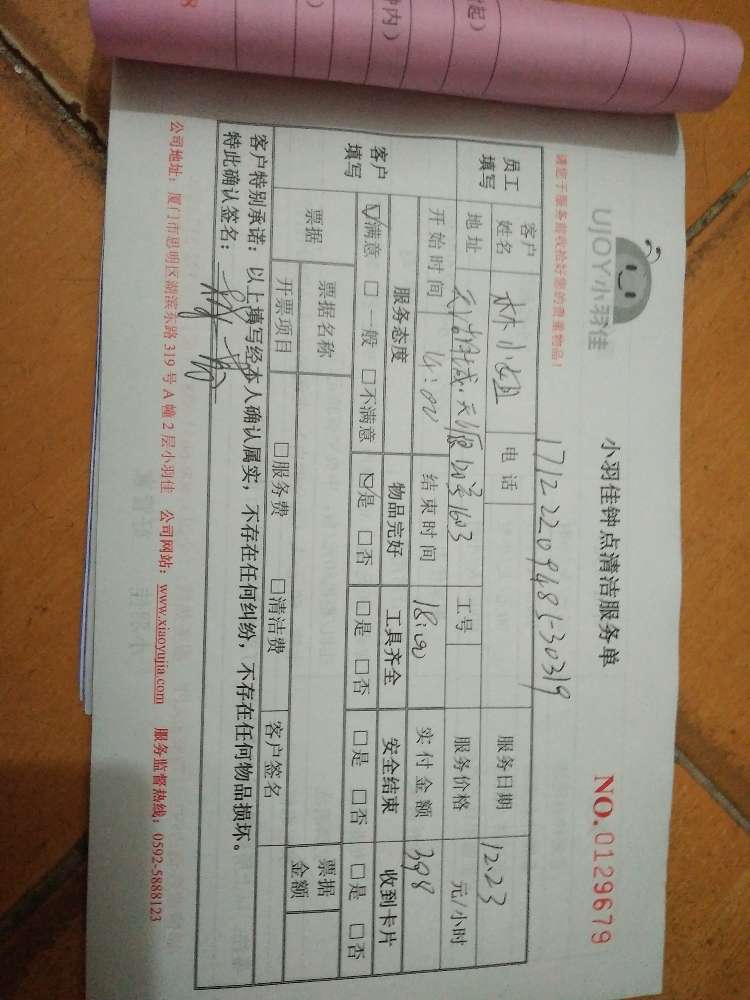 UJOY小羽佳
小羽佳钟点清洁服务单
NO.0129679
请您于服务前收捡好您的贵重物品！
171222094815-30319
员工填写 客户姓名 林小姐 电话 服务日期 12.23
地址 160号1603 工号 服务价格 元/小时
开始时间 14:00 结束时间 18:00 实付金额 398
客户填写 服务态度 物品完好 工具齐全 安全结束 收到卡片
☑满意 □一般 □不满意 ☑是 □否 □是 □否 □是 □否 □是 □否
票据 票据名称 票据金额
开票项目 □服务费 □清洁费 客户签名
客户特别承诺：以上填写经本人确认属实，不存在任何纠纷，不存在任何物品损坏。
特此确认签名：
公司地址：厦门市思明区湖滨东路319号A幢2层小羽佳 公司网站：www.xiaoyujia.com 服务监督热线：0592-5888123